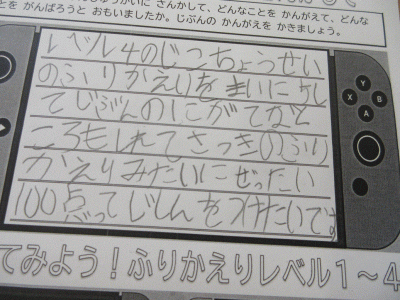 さんかして、どんなことを かんがえて、どんな
とを がんばろうと おもいましたか。じぶんの かんがえを かきましょう。
レベル4のじこちょうせい
のふりかえりをまいにちし
てじぶんのにがてなと
ころもしれてさっきのふり
かえりみたいにぜったい
100点ってじしんをつけたいです。
X
Y
B
A
てみよう!ふりかえりレベル1～4